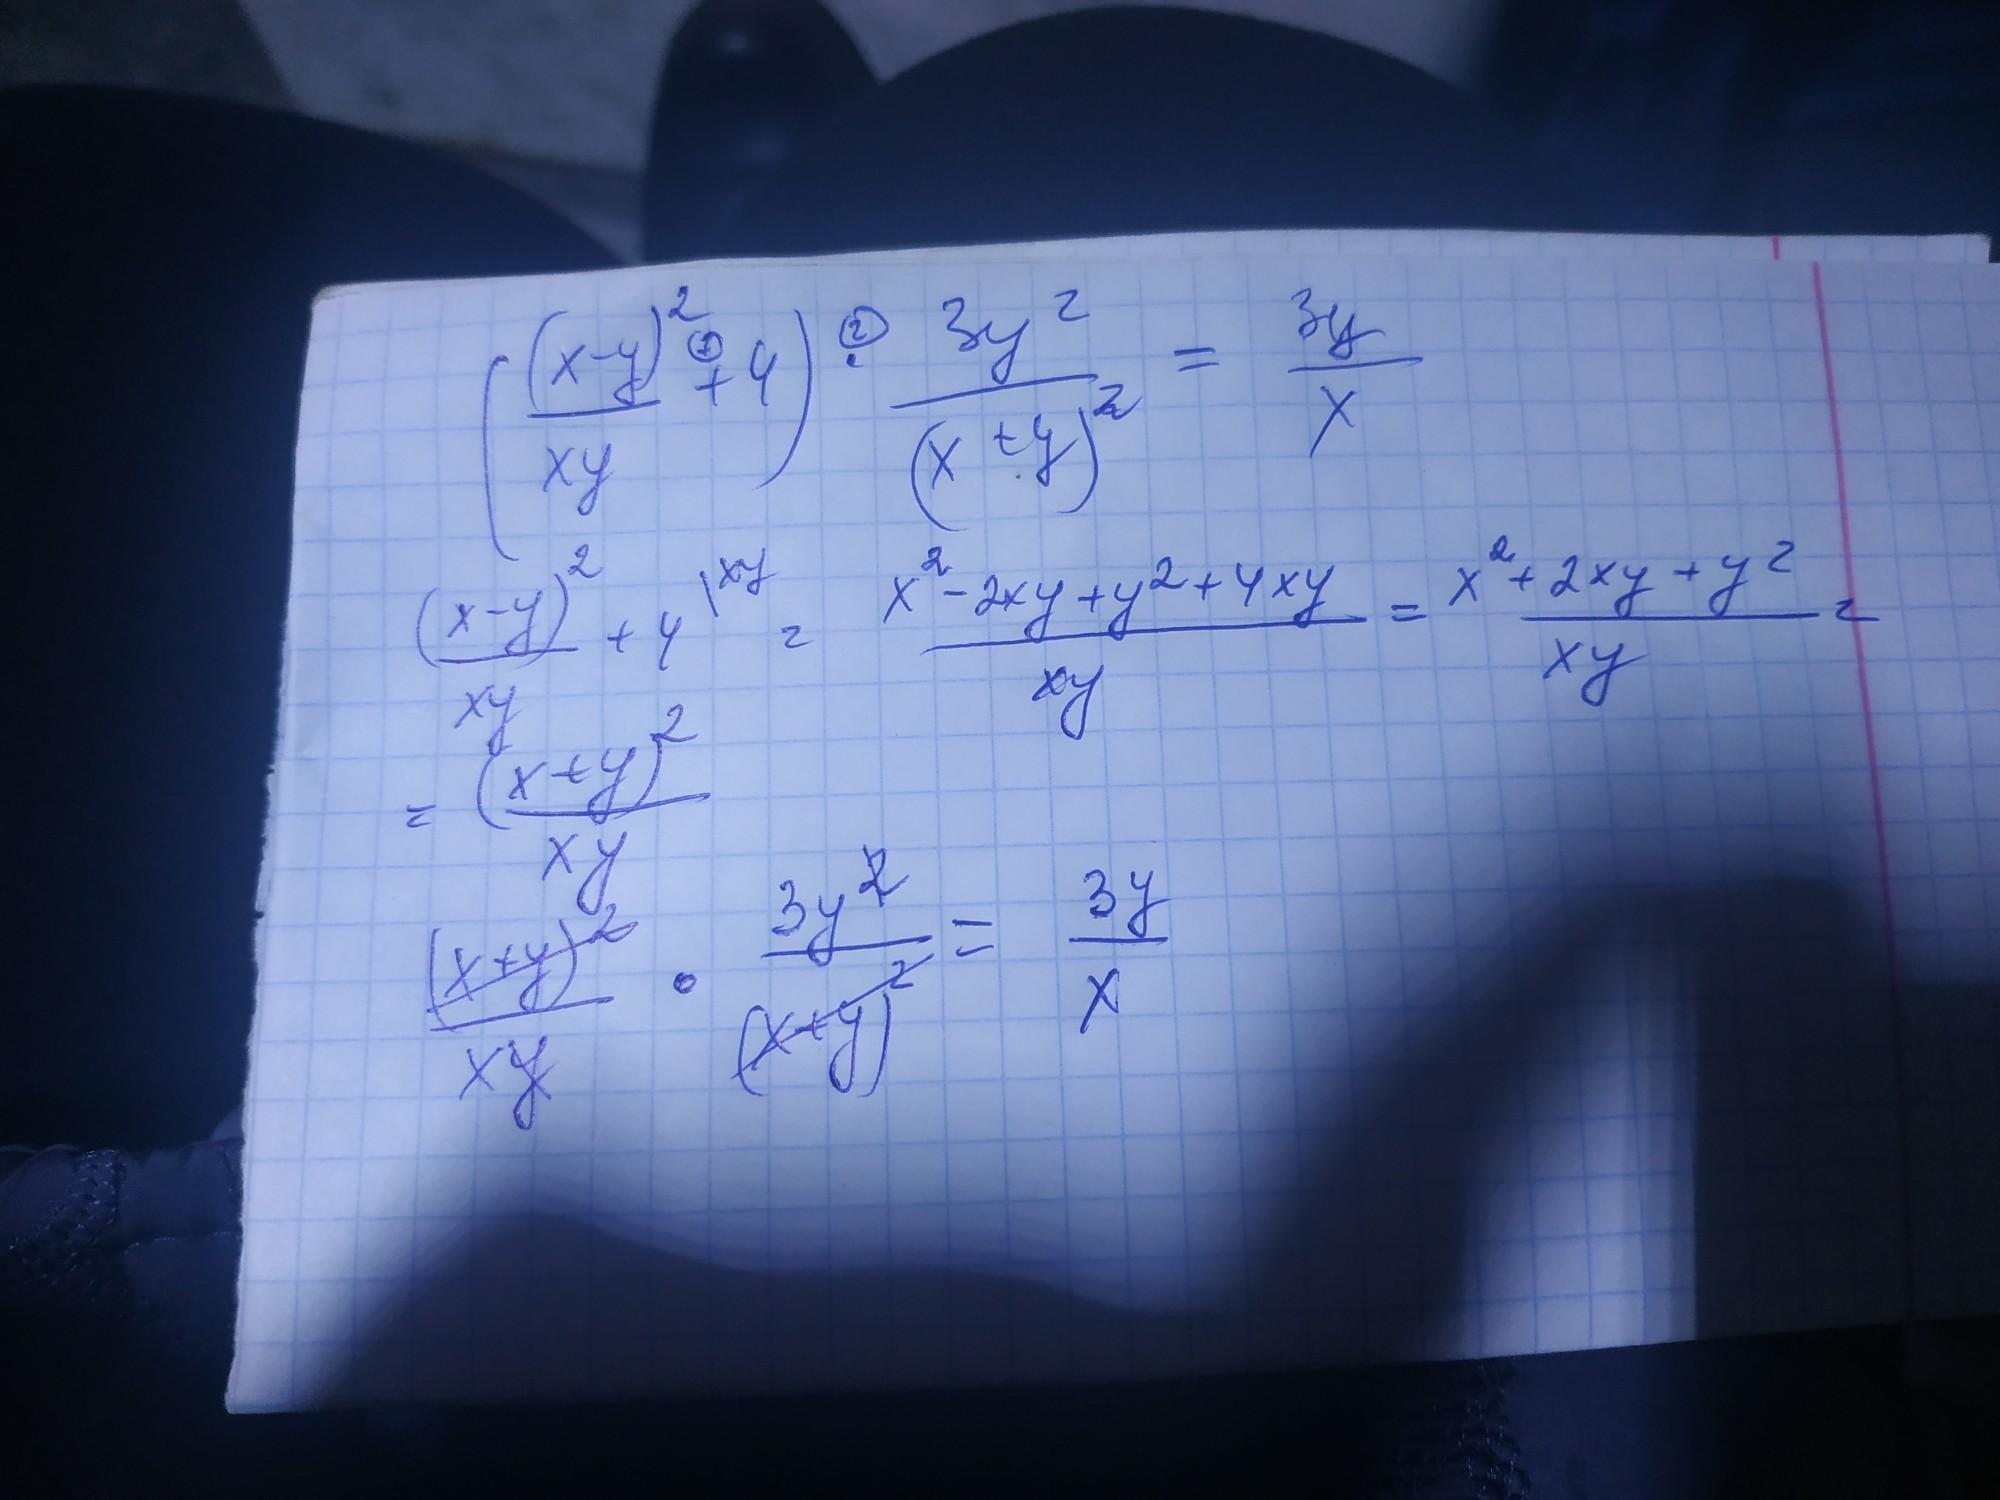 ((x-y)²/xy ①+ 4) ②· 3y²/(x+y)² = 3y/x
(x-y)²/xy + 4\xy = x²-2xy+y²+4xy/xy = x²+2xy+y²/xy =
= (x+y)²/xy
(x+y)²/xy · 3y²/(x+y)² = 3y/x